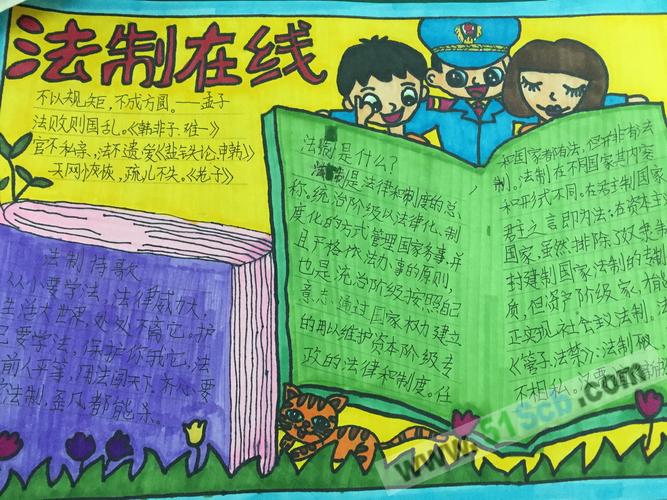 法制在线
不以规矩,不成方圆。——孟子
法败则国乱。《韩非子·难一》
官不私亲,法不遗爱《盐铁论,申韩》
天网恢恢,疏儿不失。《老子》
法制诗歌
从小要学法,法律威力大,
生活大世界,处处不离它。护
己要学法,保护你我它。法
前人平事,用法闯天下,齐心要
学法制,歪瓜都能亲。
法制是什么?
法制是法律和制度的总
称。统治阶级以法律化、制
度化的方式管理国家务事,并
且严格依法办事的原则,
也是统治阶级按照自己
意志通过国家权力建立
的用以维护资本阶级专
政的法律和制度。任
和国家都有法,但并非有法
制。法制在不同国家其内容
和形式不同。在君主制国家
君主之言即为法;在资本主
国家,虽然排除
封建制国家法制的专制
质,但资产阶级家,
正实现社会主义法制。
《管子,法禁》:法制
不相私。
www.51Scb.com